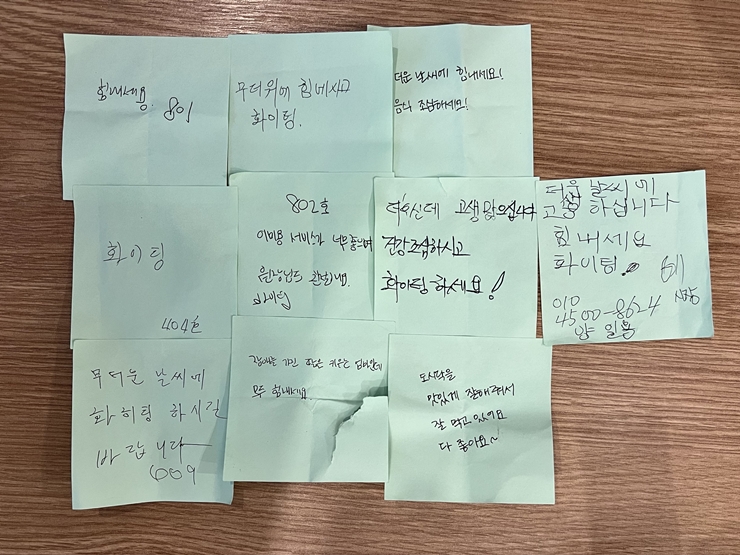 힘내세용
801
무더위에 힘네시고
화이팅.
더운 날씨에 힘내세요!
음식 조심하세요!
화이팅
404호
802호
이미용 서비스가 너무좋으며
원장님도
화이팅
더우신데 고생 많으십니다
건강조심하시고
화이팅 하세요!
더운 날씨에
고생 하십니다
힘내세요
화이팅.
010
4500-8624
양 일용
무더운 날씨에
화히팅 하시길
바랍니다
609
키우는
모두 힘내세요.
도시락을
맛있게 잘해줘서
잘 먹고 있어요
다 좋아요~